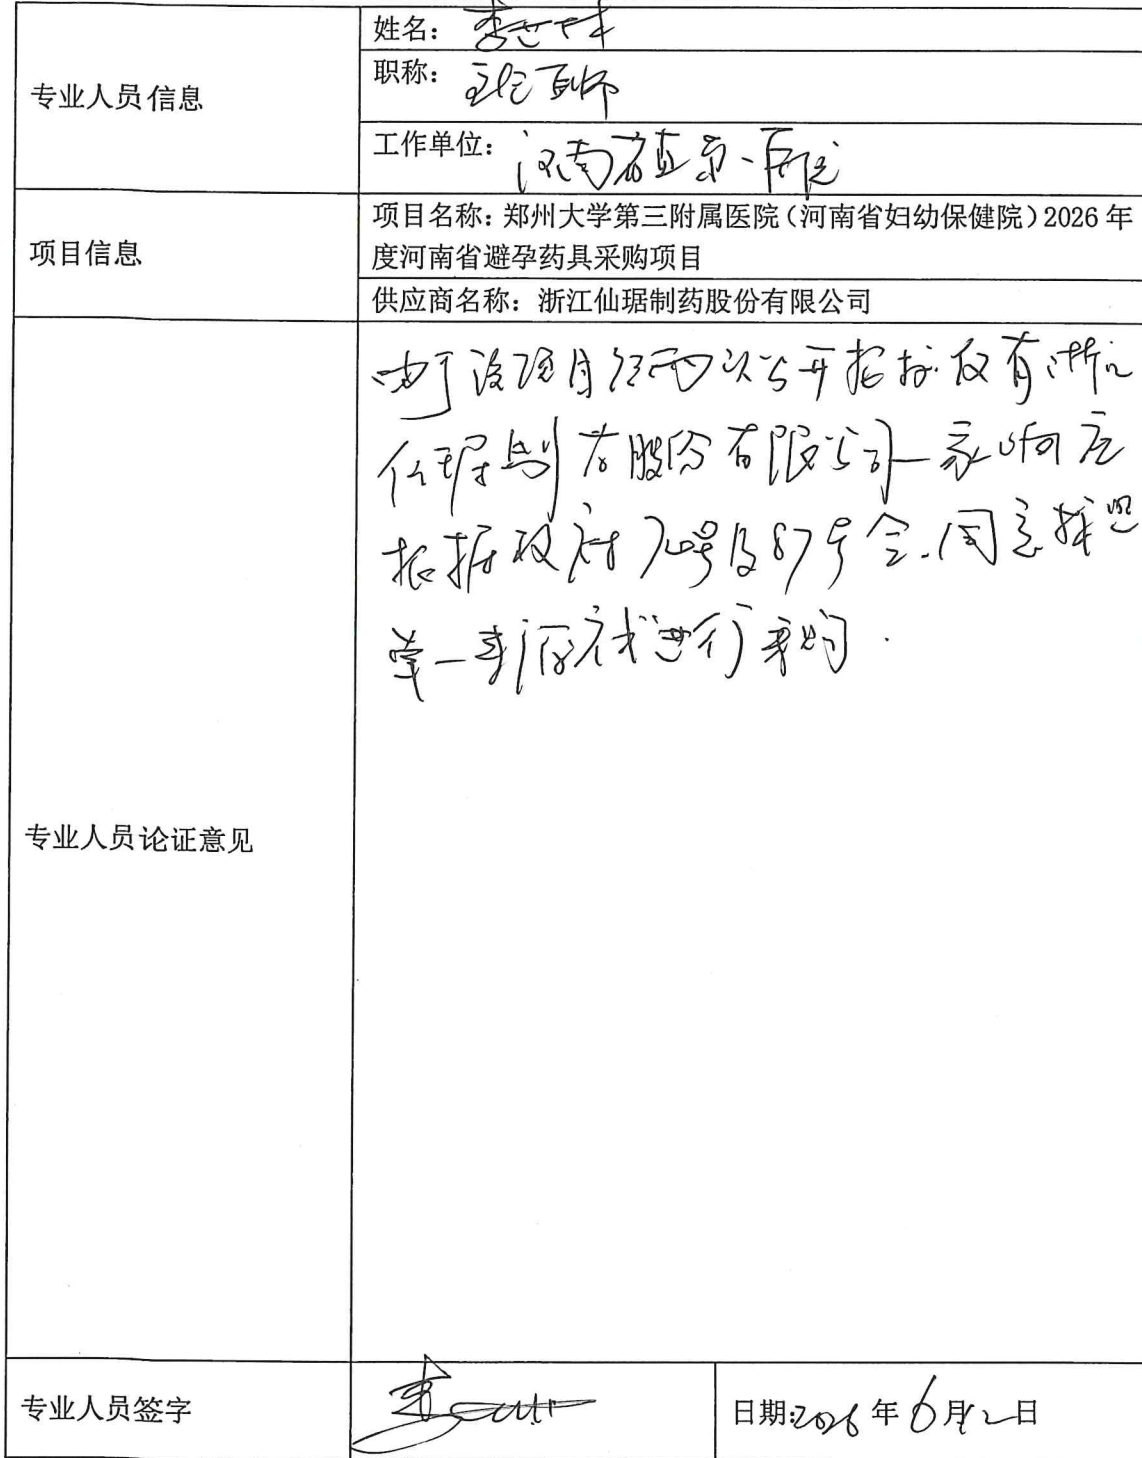 专业人员信息
姓名：李世
职称：主任医师
工作单位：河南省直第一医院
项目信息
项目名称：郑州大学第三附属医院（河南省妇幼保健院）2026年
度河南省避孕药具采购项目
供应商名称：浙江仙琚制药股份有限公司
专业人员论证意见
由于该项目经两次公开招标仅有浙江
仙琚制药股份有限公司一家响应
根据政府74号及87号令.同意按照
单一来源方式进行采购.
专业人员签字
日期:2026年6月2日